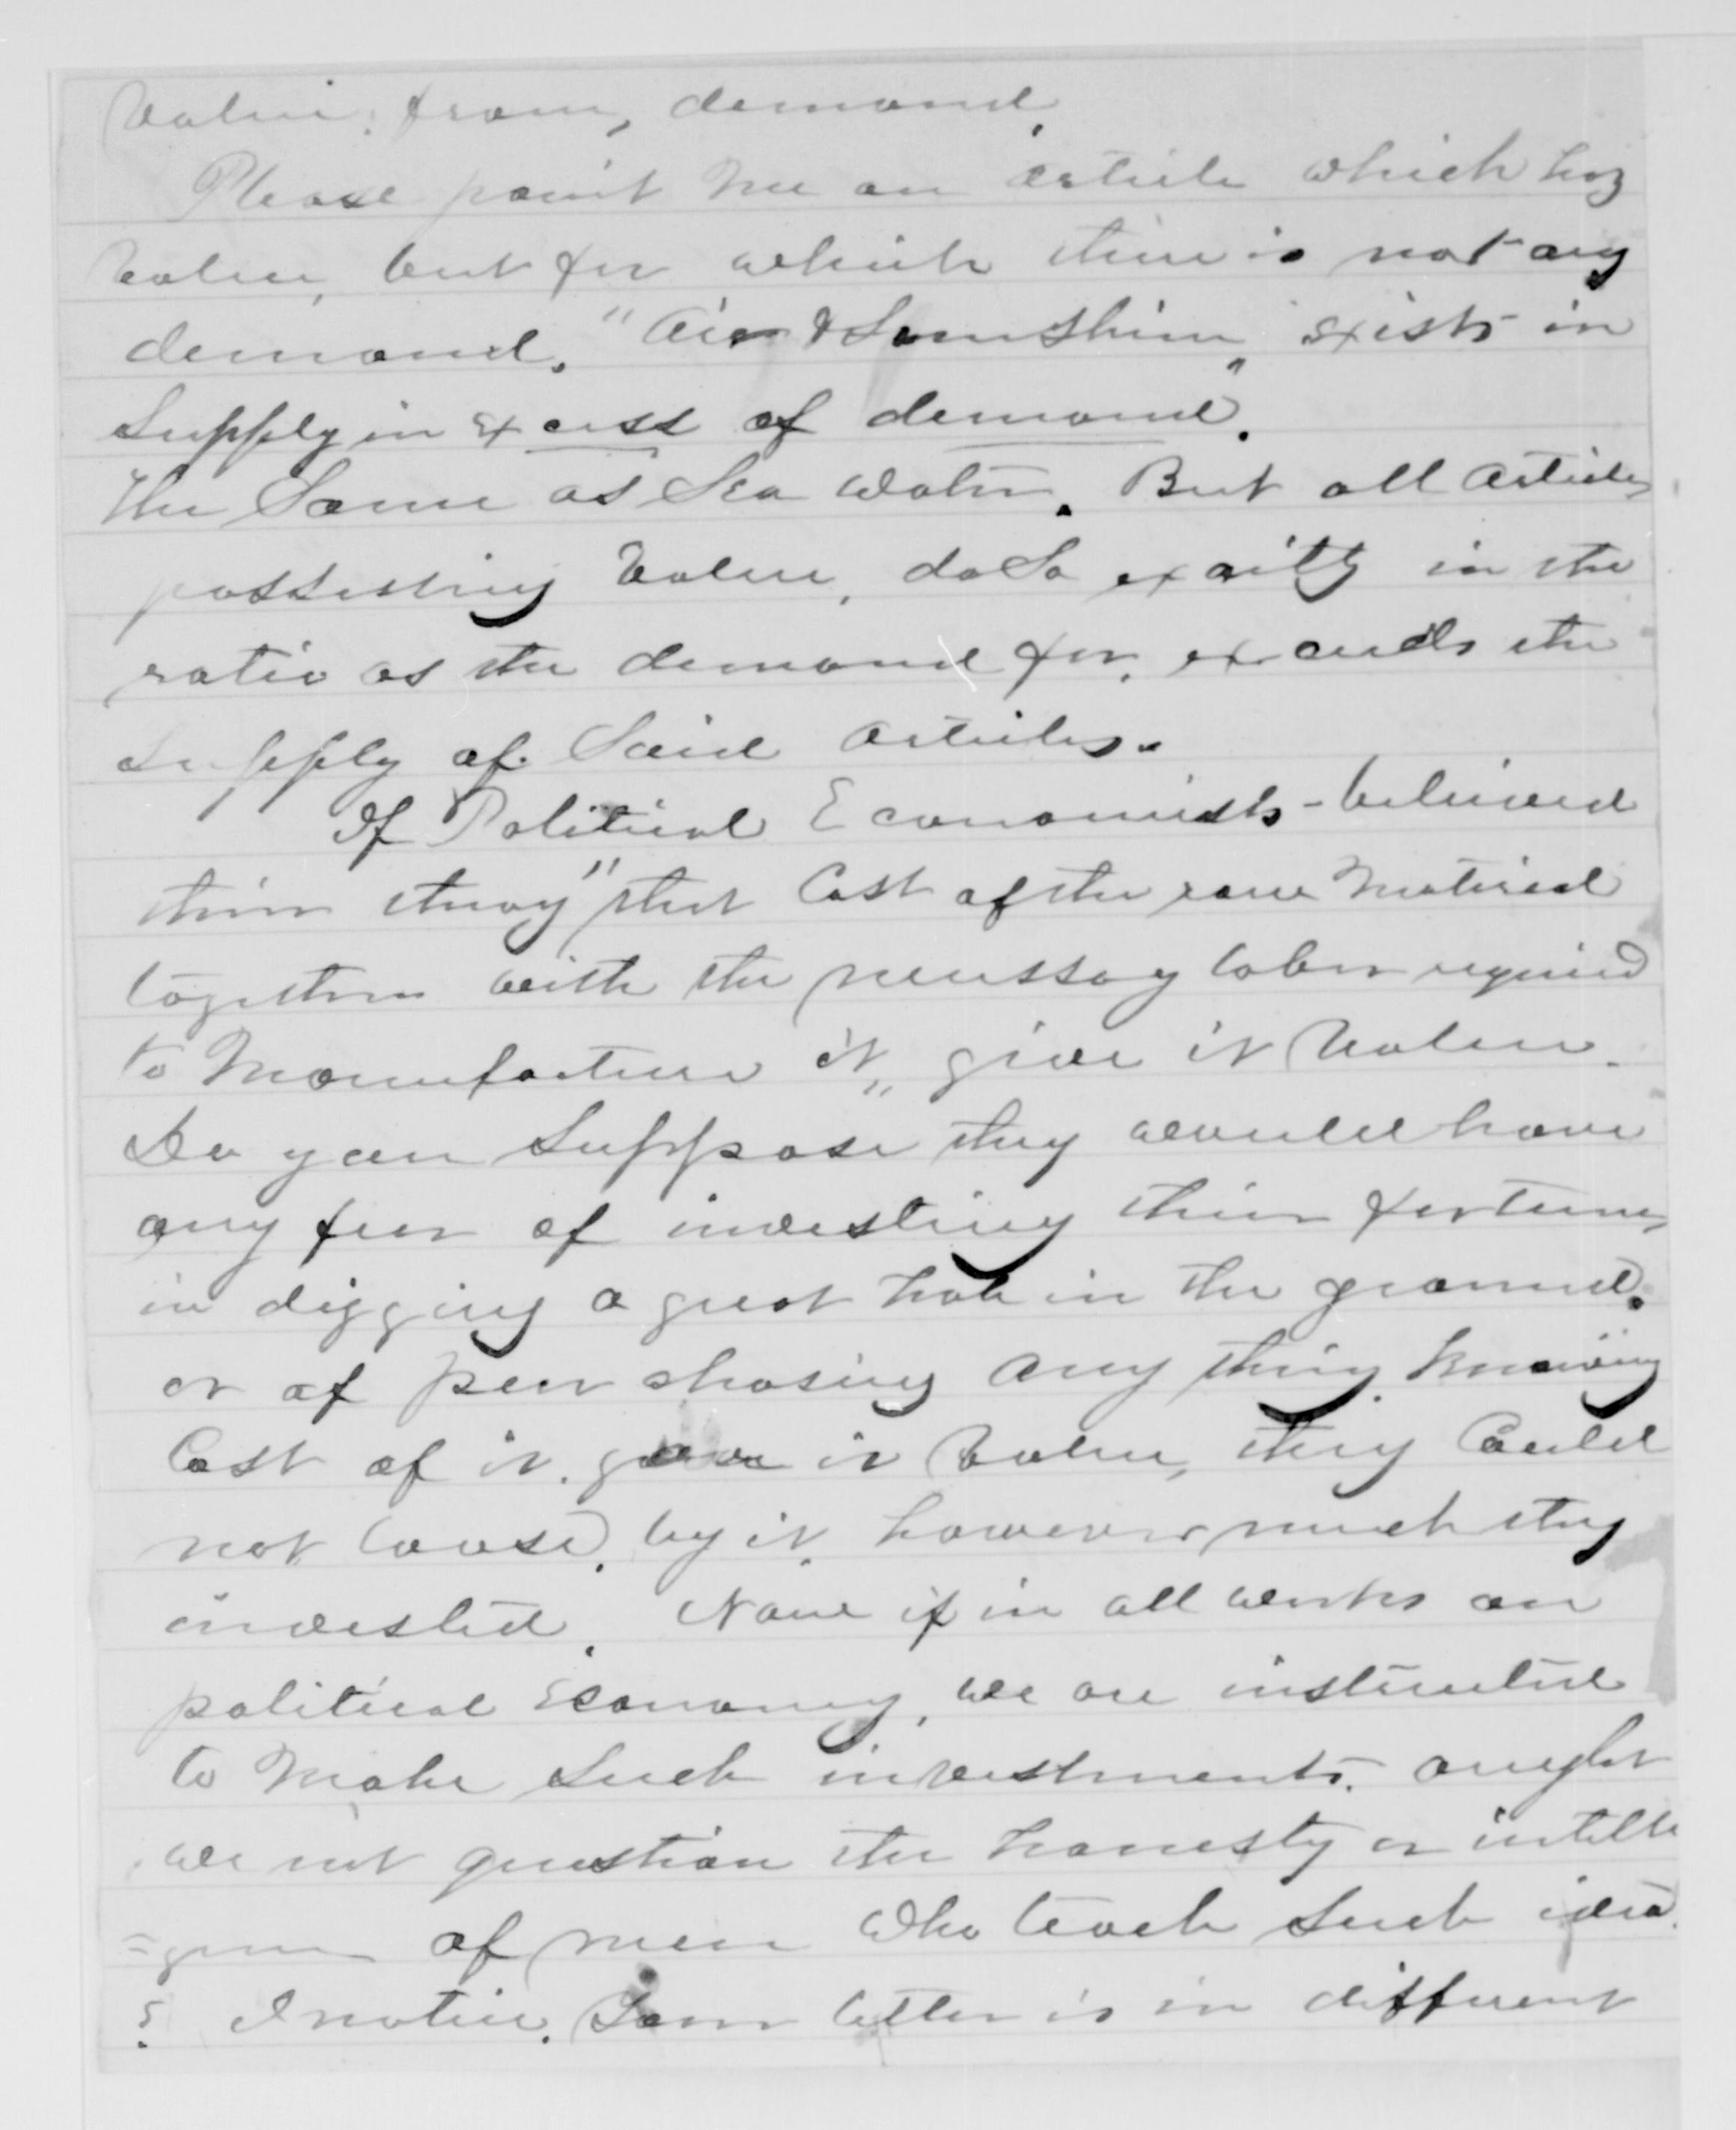 Value; from, demand.
Please point me an article which has
Value, but for which there is not any
demand. "Air & Sunshine" exists in
Supply in excess of demand.
The Same as Sea Water. But all articles
possessing Value, do So exactly in the
ratio as the demand for, exceeds the
Supply of Said articles.
If Political Economists - believed
their theory "that Cost of the raw Material
together with the necessary labor required
to Manufacture it" give it Value.
Do you Suppose they would have
any fear of investing their fortunes
in digging a great hole in the ground.
or of purchasing any thing. knowing
Cost of it. gave it Value, they Could
not loose, by it, however much they
invested. Now if in all works on
political Economy, we are instructed
to Make Such investments. ought
we not question the honesty or intelli
=gence of men Who teach Such ideas
? I notice. Your letter is in different